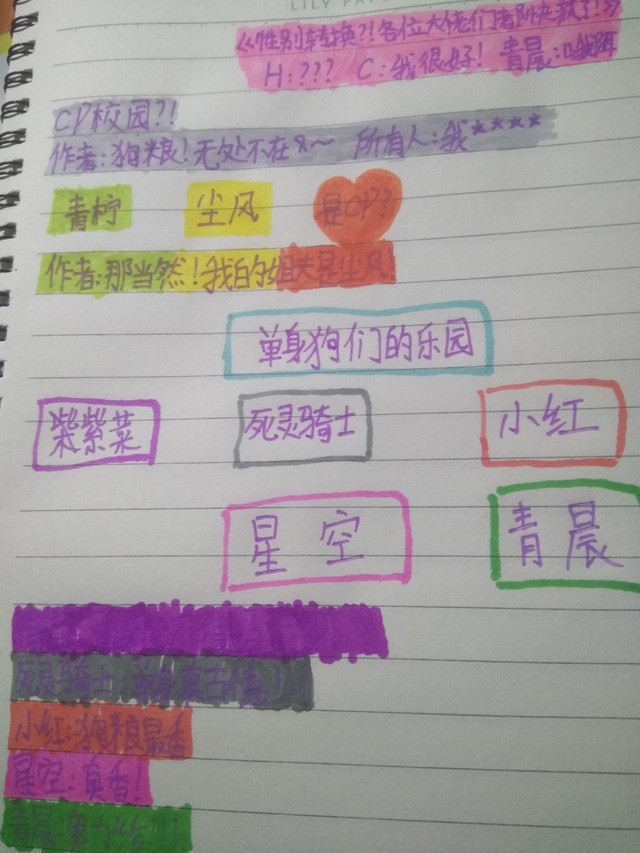 LILY PA
《《性别转换?!各位大佬们者阶夬颏了!》
H:??? C:我很好! 青晨:
CP校园?!
作者:狗粮!无处不在a~ 所有人:我★★★★
青柠 尘风 是CP??
作者:那当然!我的姐夫是尘风!
单身狗们的乐园
紫紫菜 死灵骑士 小红
星空 青晨
死灵骑士:单身
小红:狗粮最香
星空:真香!
青晨: